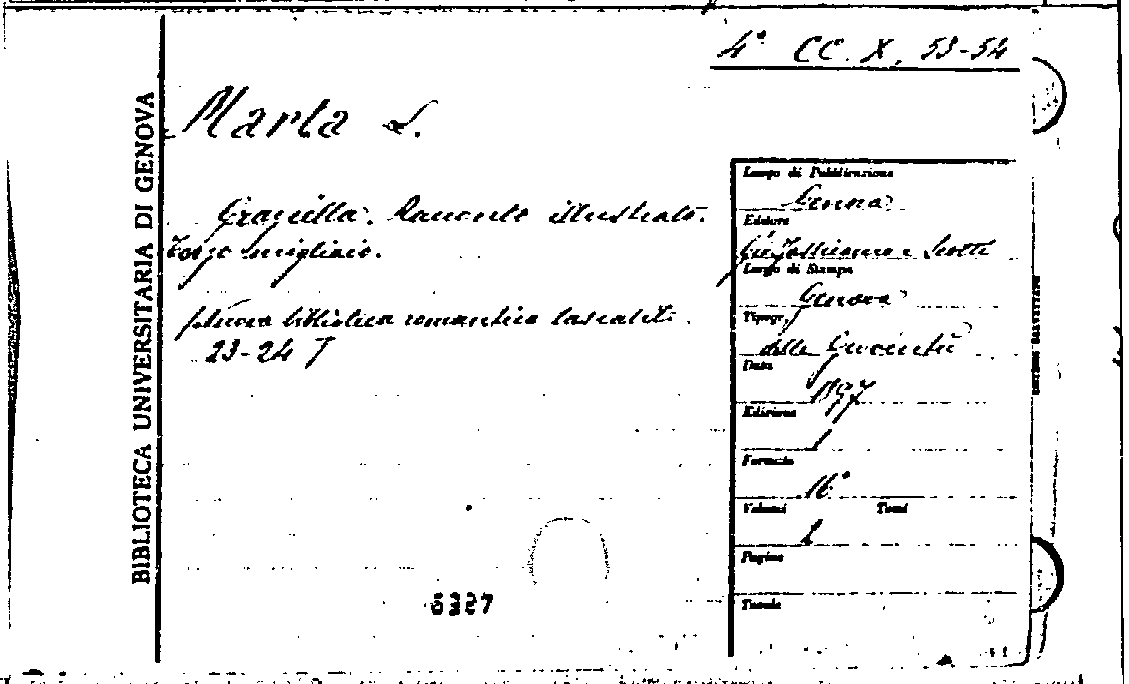 4° CC. X. 53-54
BIBLIOTECA UNIVERSITARIA DI GENOVA
Marta L.
Graziella. Racconto illustrato.
Terzo migliaio.
Nuova biblioteca romantica tascabile.
23-24
Luogo di Pubblicazione
Genova
Editore
Scotti
Luogo di Stampa
Genova
Tipogr.
della Gioventù
Data
1897
Edizione
1
Formato
16°
Volumi Tomi
2
Pagine
Tavole
6227